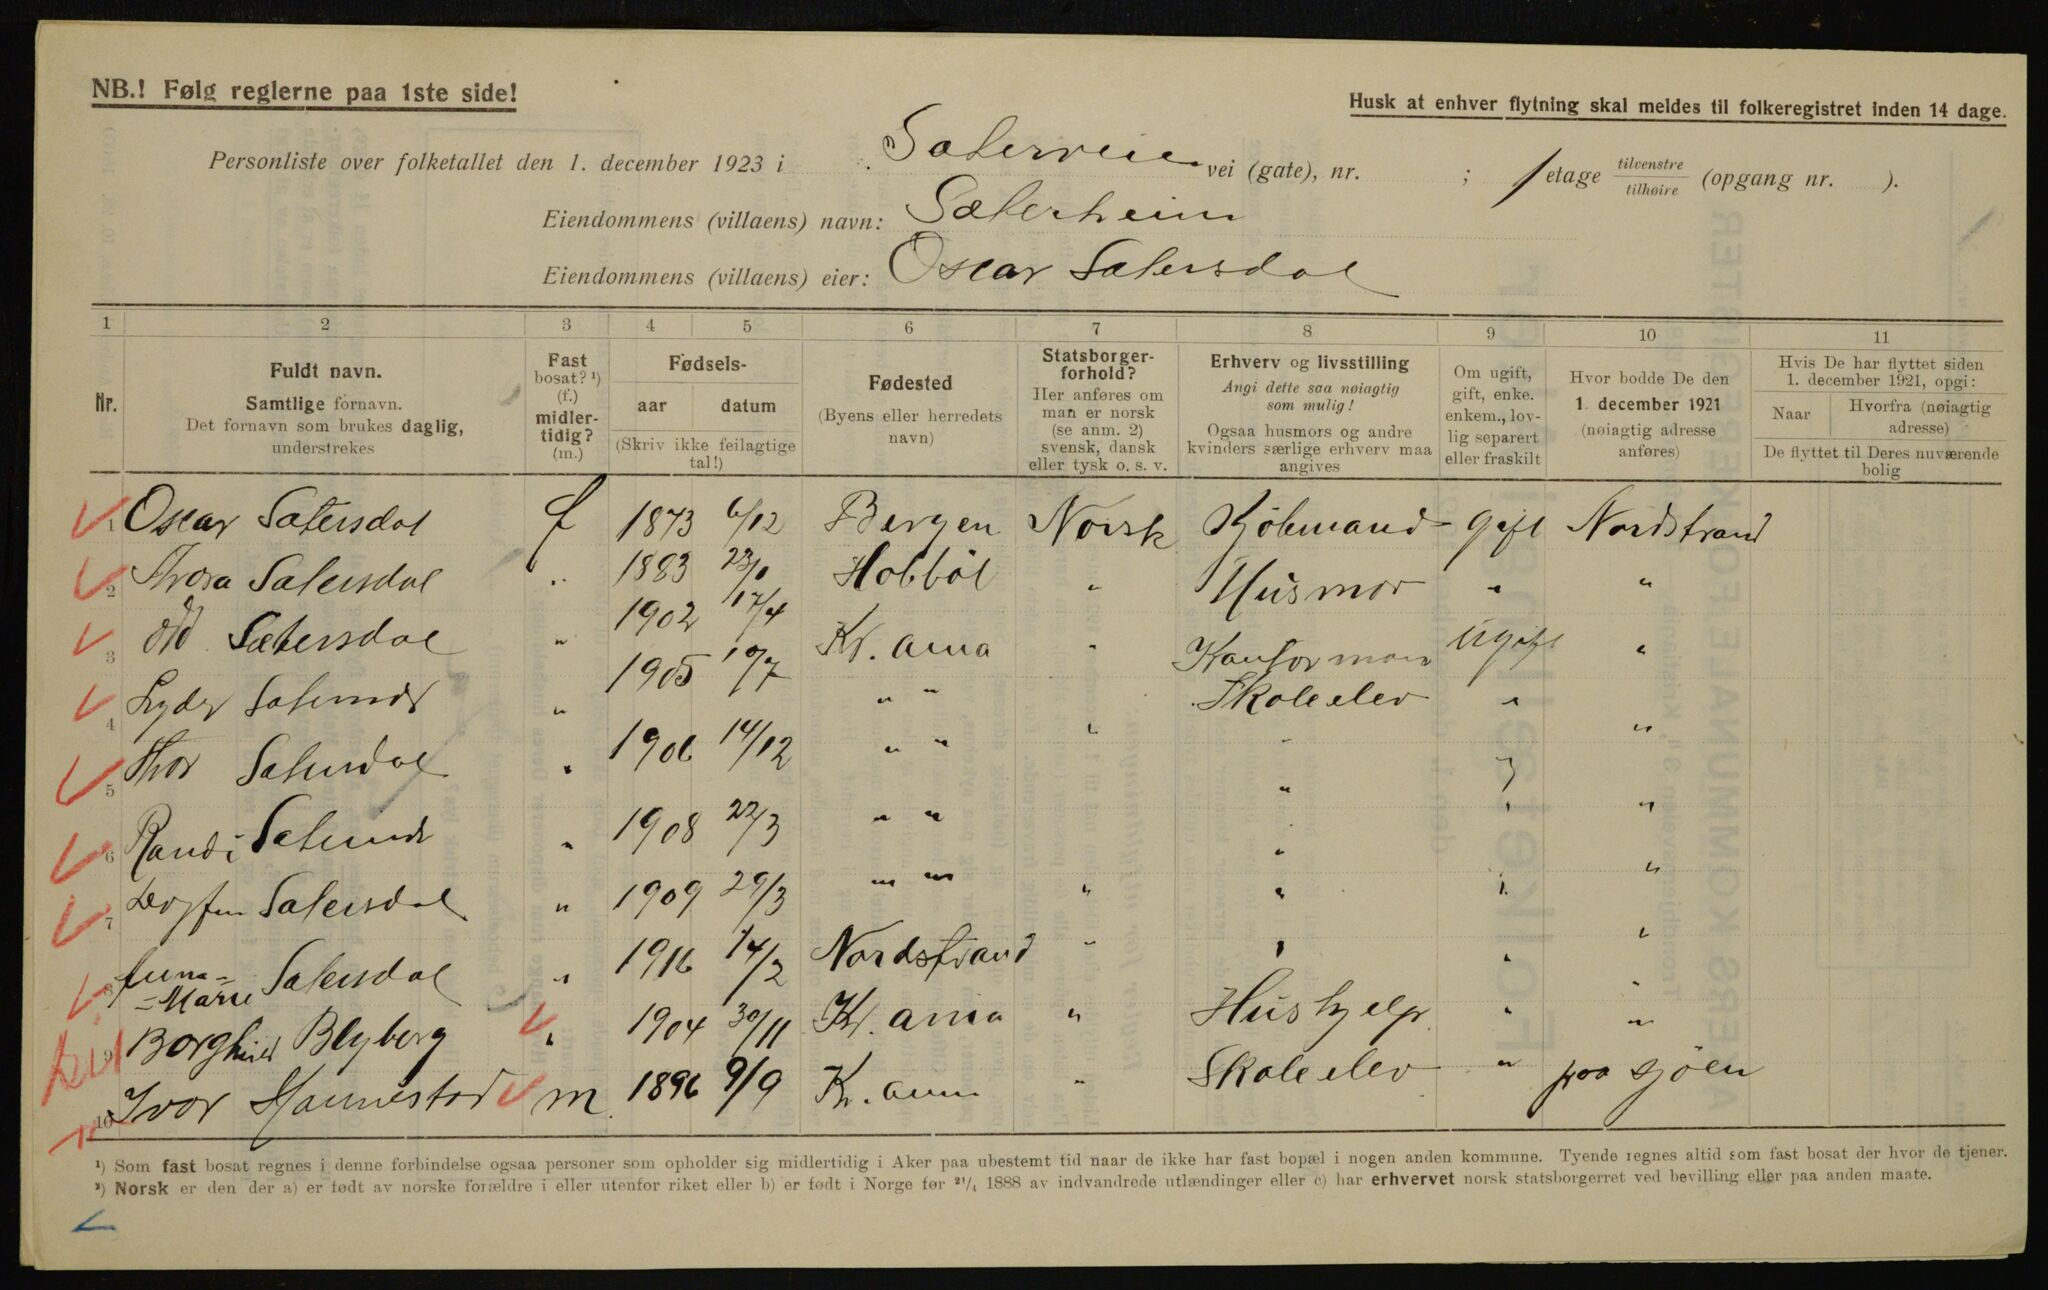 NB.! Følg reglerne paa 1ste side!
Husk at enhver flytning skal meldes til folkeregistret inden 14 dage.
Personliste over folketallet den 1. december 1923 i Sæterveien vei (gate), nr. ; 1 etage tilvenstre tilhøire (opgang nr. ).
Eiendommens (villaens) navn: Sæterheim
Eiendommens (villaens) eier: Oscar Sætersdal
1 2 3 4 5 6 7 8 9 10 11
Nr.
Fuldt navn. Samtlige fornavn. Det fornavn som brukes daglig, understrekes
Fast bosat? ¹) (f.) midlertidig? (m.)
Fødsels- aar datum (Skriv ikke feilagtige tal!)
Fødested (Byens eller herredets navn)
Statsborgerforhold? Her anføres om man er norsk (se anm. 2) svensk, dansk eller tysk o. s. v.
Erhverv og livsstilling Angi dette saa nøiagtig som mulig! Ogsaa husmors og andre kvinders særlige erhverv maa angives
Om ugift, gift, enke. enkem., lovlig separert eller fraskilt
Hvor bodde De den 1. december 1921 (nøiagtig adresse anføres)
Hvis De har flyttet siden 1. december 1921, opgi: Naar Hvorfra (nøiagtig adresse) De flyttet til Deres nuværende bolig
1 Oscar Sætersdal f 1873 6/12 Bergen Norsk Kjöbmand gift Nordstrand
2 Thora Sætersdal " 1883 Hobböl " Husmor " "
3 Odd Sætersdal " 1902 17/4 Kr. ania " Kontorman Ugift "
4 Lyder Sætersdal " 1905 10/7 " " Skoleelev " "
5 Thor Sætersdal " 1906 14/12 " " " " "
6 Randi Sætersdal " 1908 22/3 " " " " "
7 Dagfin Sætersdal " 1909 29/3 " " " " " "
8 Anna-Marie Sætersdal " 1916 14/2 Nordstrand " " " "
9 Borghild Blyberg " 1904 30/11 Kr. ania " Hushjelp " "
10 Ivar Hannestad m 1896 9/9 Kr. ania " Skoleelev " paa sjöen
¹) Som fast bosat regnes i denne forbindelse ogsaa personer som opholder sig midlertidig i Aker paa ubestemt tid naar de ikke har fast bopæl i nogen anden kommune. Tyende regnes altid som fast bosat der hvor de tjener.
²) Norsk er den der a) er født av norske forældre i eller utenfor riket eller b) er født i Norge før ²¹/₄ 1888 av indvandrede utlændinger eller c) har erhvervet norsk statsborgerret ved bevilling eller paa anden maate.